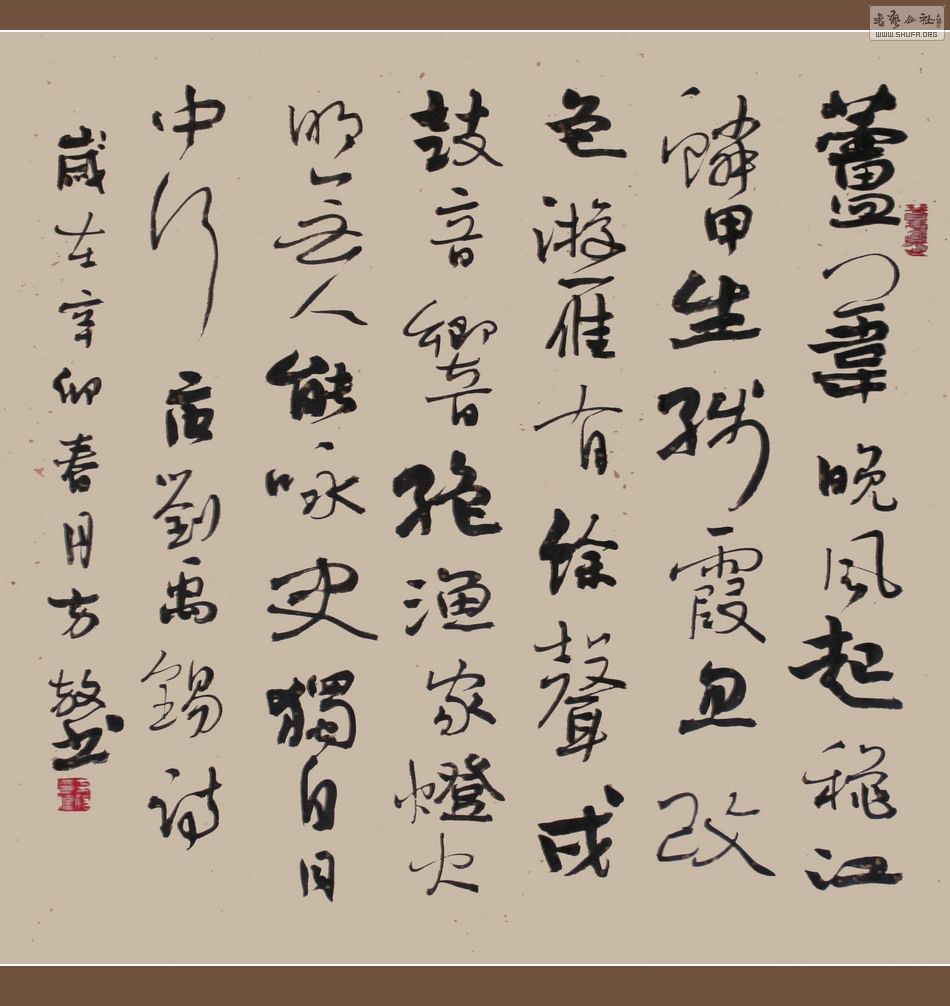 蘆葦晚風起穐江
鱗甲生殘霞忽改
色游雁有餘聲戍
鼓音響絶漁家燈火
明無人能咏史獨自月
中行 唐劉禹錫詩
歲在辛卯春月方書
書藝公社
WWW.SHUFA.ORG